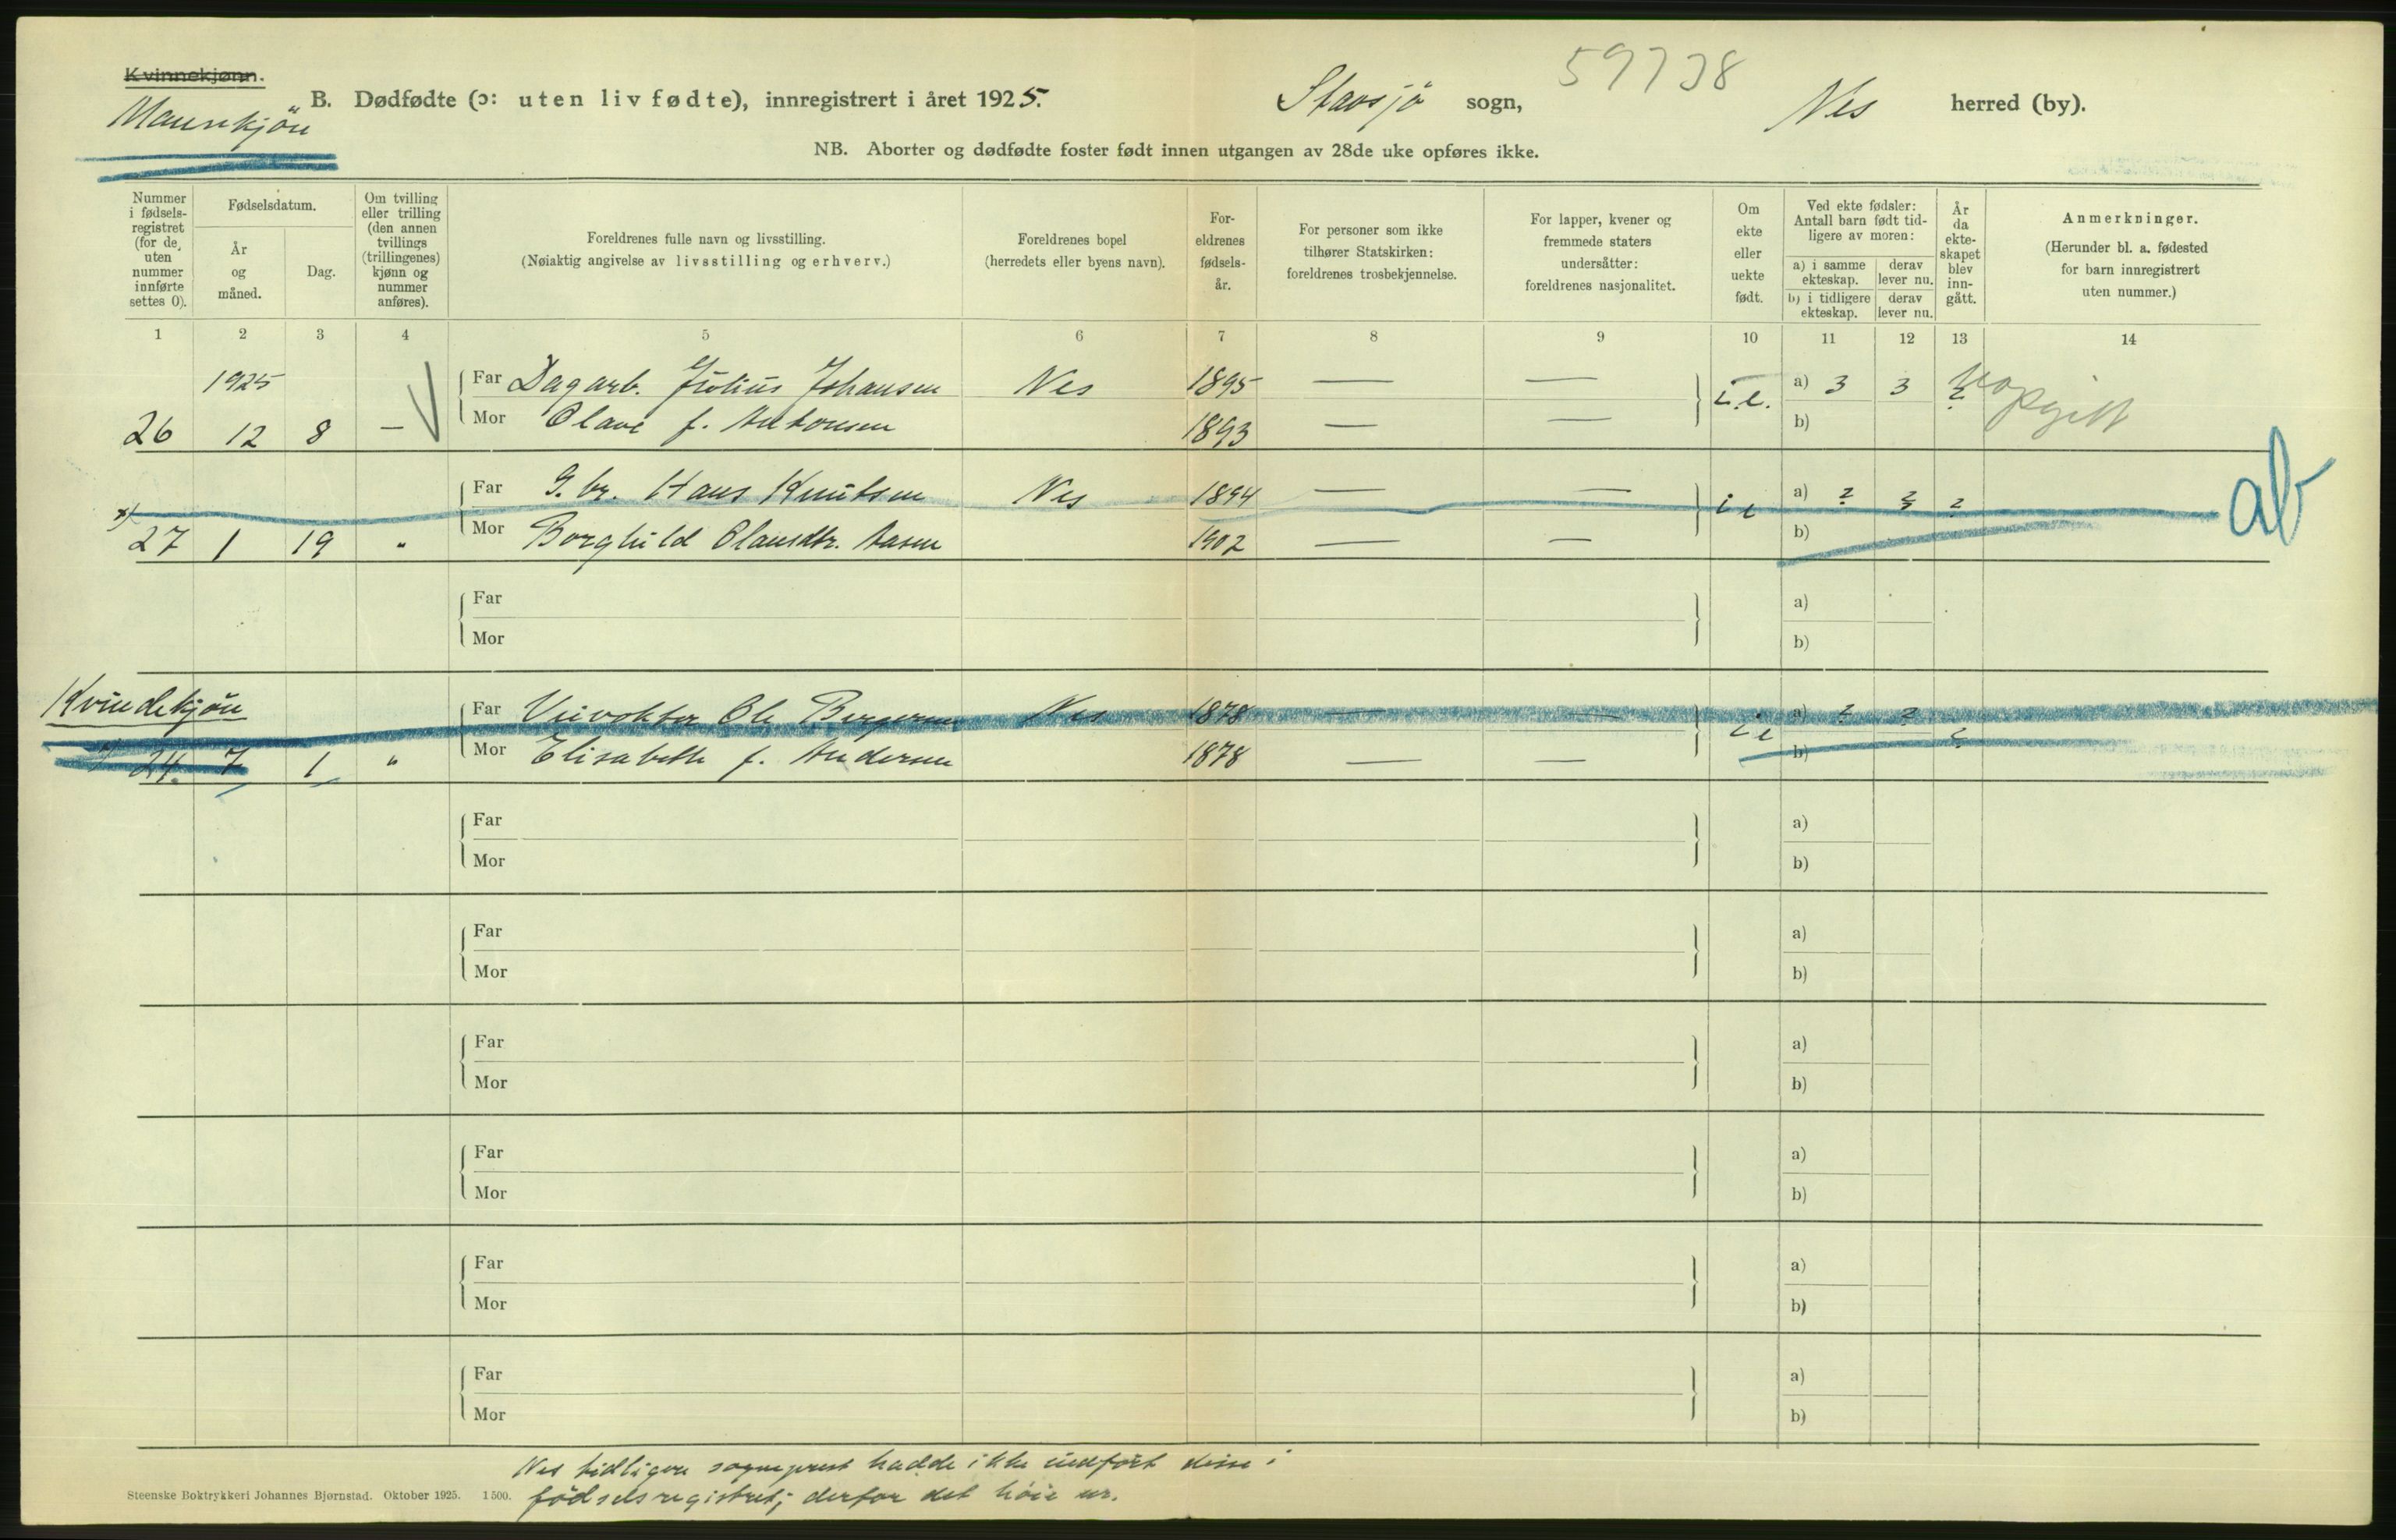 Kvinnekjønn.
Mannkjön
B. Dødfødte (ɔ: uten liv fødte), innregistrert i året 1925.
Stavsjö sogn,
59738
Nes herred (by).
NB. Aborter og dødfødte foster født innen utgangen av 28de uke opføres ikke.
Nummer i fødsels-registret (for de uten nummer innførte settes 0).
Fødselsdatum.
År og måned.
Dag.
Om tvilling eller trilling (den annen tvillings (trillingenes) kjønn og nummer anføres).
Foreldrenes fulle navn og livsstilling.
(Nøiaktig angivelse av livsstilling og erhverv.)
Foreldrenes bopel
(herredets eller byens navn).
For-eldrenes fødsels-år.
For personer som ikke tilhører Statskirken: foreldrenes trosbekjennelse.
For lapper, kvener og fremmede staters undersåtter: foreldrenes nasjonalitet.
Om ekte eller uekte født.
Ved ekte fødsler: Antall barn født tid-ligere av moren:
a) i samme ekteskap.
derav lever nu.
b) i tidligere ekteskap.
derav lever nu.
År da ekte-skapet blev inn-gått.
Anmerkninger.
(Herunder bl. a. fødested for barn innregistrert uten nummer.)
1 2 3 4 5 6 7 8 9 10 11 12 13 14
1925
Far Dagarb. Julius Johansen Nes 1895 — — i.e. a) 3 3 ?
uopgitt
26 12 8 — Mor Olave f. Antonsen 1893 — — b)
Far G.br. Hans Knutsen Nes 1894 — — i e a) ? ? ?
ab
x) 27 1 19 " Mor Borghild Olausdtr. Aasen 1902 — — b)
Far a)
Mor b)
Kvindekjön
Far Veivokter Ole Bergersen Nes 1878 — — i e a) ? ? ?
24. 7 1 " Mor Elisabeth f. Andersen 1878 — — b)
Far a)
Mor b)
Far a)
Mor b)
Far a)
Mor b)
Far a)
Mor b)
Far a)
Mor b)
Far a)
Mor b)
Nes tidligere sogneprest hadde ikke innfört disse i
födselsregistret; derfor det höie nr.
Steenske Boktrykkeri Johannes Bjørnstad. Oktober 1925. 1500.